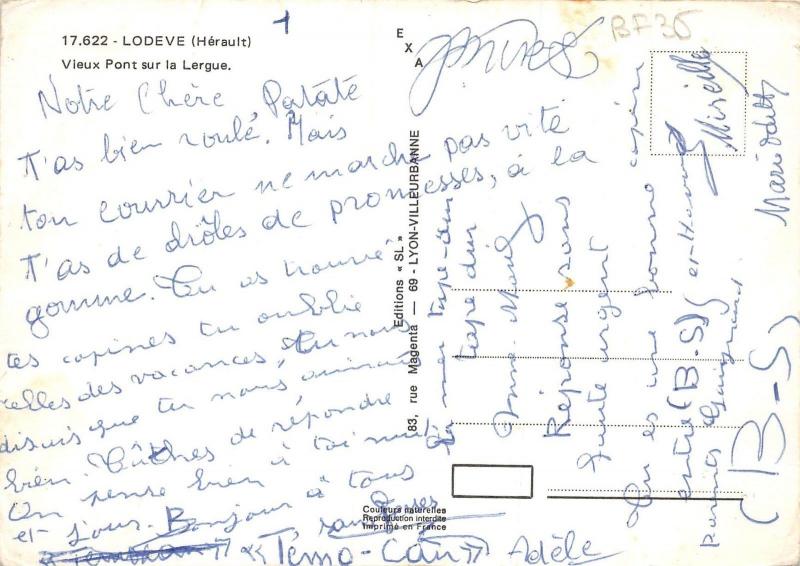 17.622 - LODEVE (Hérault)
Vieux Pont sur la Lergue.
1
Notre Chère Patate
T'as bien roulé. Mais
ton courrier ne marche pas vite
T'as de drôles de promesses, à la
gomme. Tu as trouvé
tes copines tu oublie
celles des vacances, tu nous
disais que tu nous aimais
bien. Tâches de répondre
On pense bien à toi nuit
et jour. Bonjour à tous
« Témo-Can » Adèle
EXA
Editions « SL »
83, rue Magenta — 69 - LYON-VILLEURBANNE
Couleurs naturelles
Reproduction interdite
Imprimé en France
BF36
tape-dur
tape dur
Réponse sans
faute urgent
Tu es une bonne copine
entre (B-S)
Mireille
(B-S)